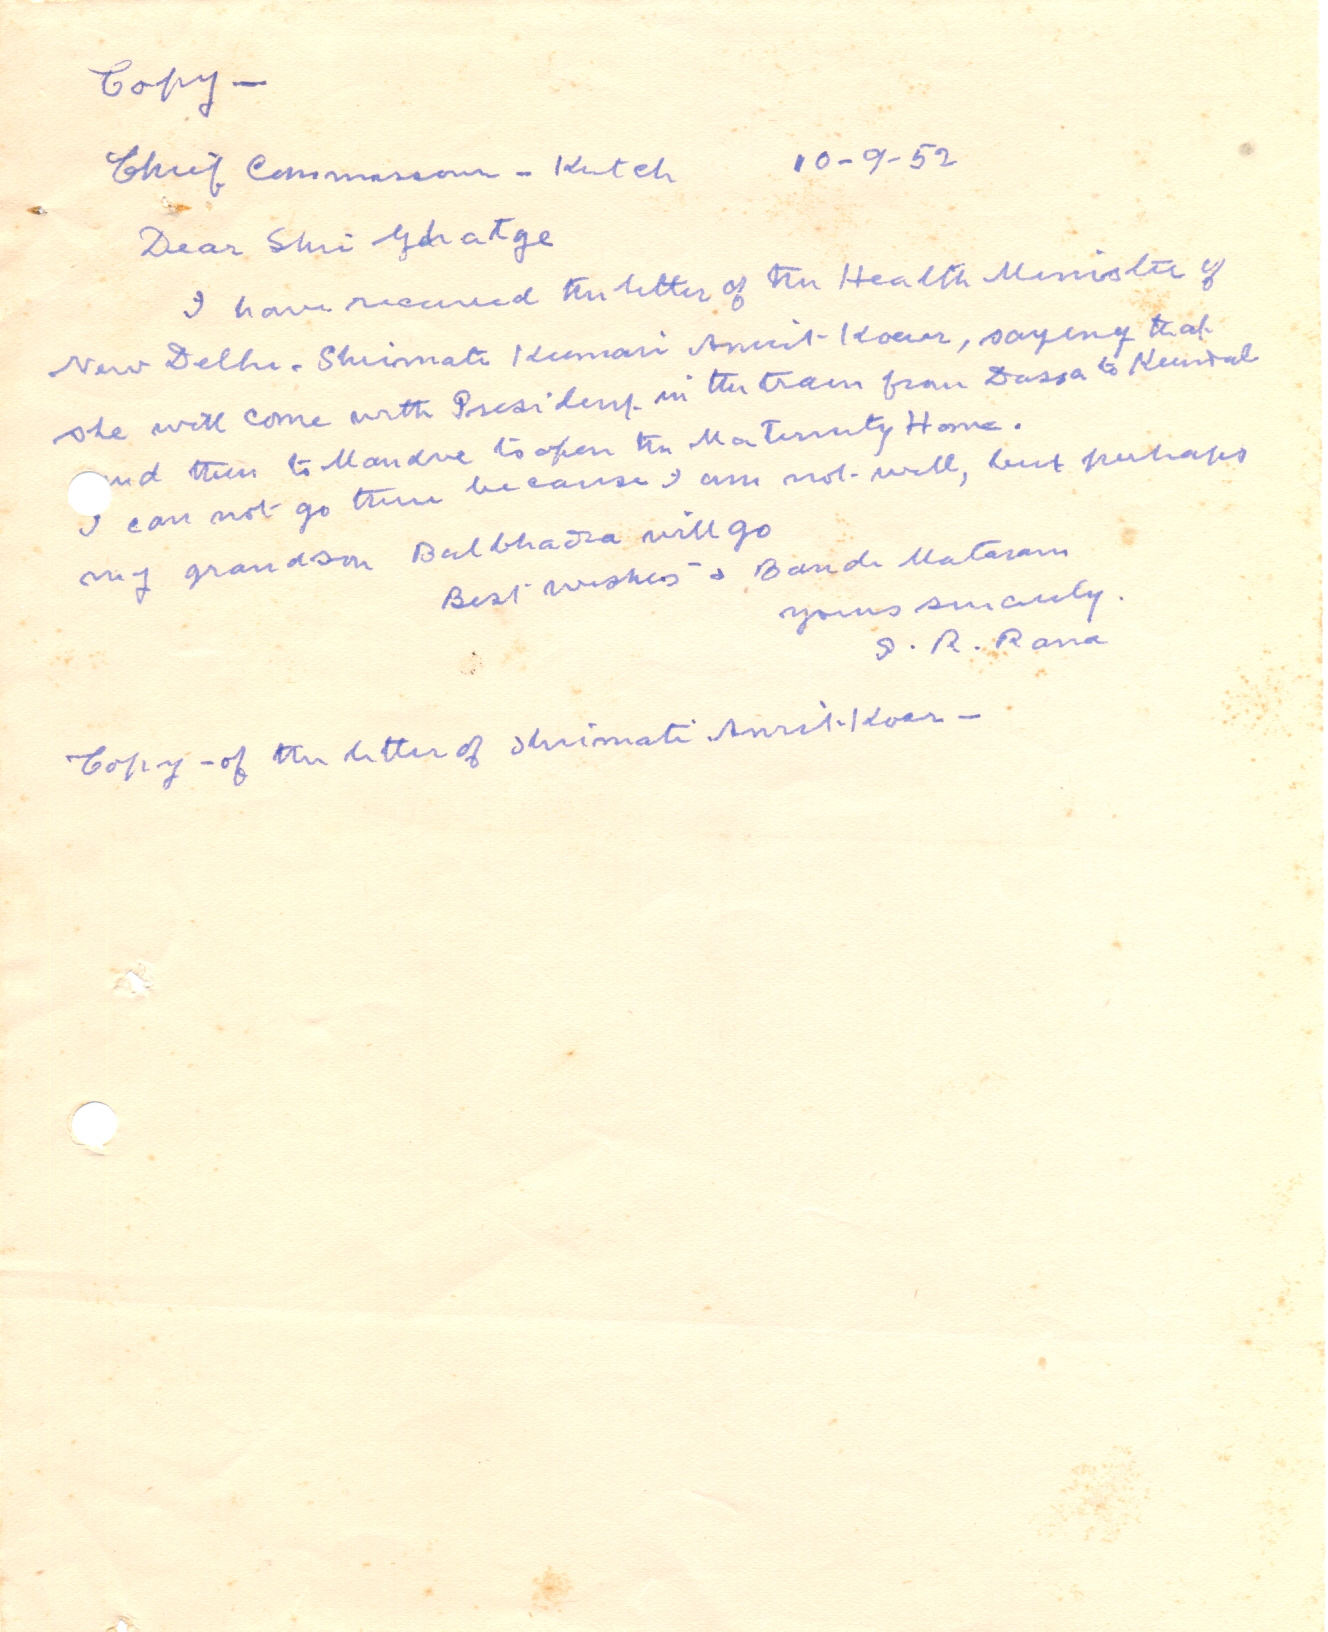 Copy —
Chief Commissioner - Kutch 10-9-52
Dear Shri Ghatge
I have received the letter of the Health Minister of
New Delhi. Shrimati Kumari Amrit-Koaur, saying that
she will come with President in the train from Dassa to Kundal
and then to Mandve to open the Maternity Home.
I can not go there because I am not well, but perhaps
my grandson Balbhadra will go
Best wishes & Bande Mataram
yours sincerely.
S. R. Rana
Copy - of the letter of Shrimati Amrit-Koar —